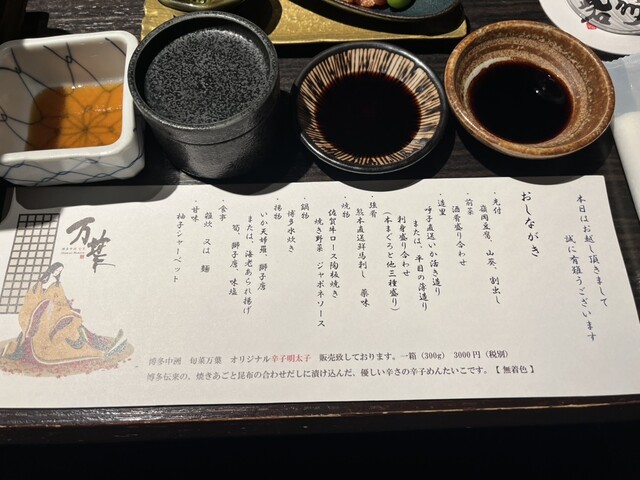 本日はお越し頂きまして
誠に有難うございます
おしながき
・先付
嶺岡豆腐、山葵、割出し
・前菜
酒肴盛り合わせ
・造里
呼子直送いか活き造り
または、平目の薄造り
刺身盛り合わせ
(本まぐろと他三種盛り)
・強肴
熊本直送鮮馬刺し 薬味
・焼物
佐賀牛ロース陶板焼き
焼き野菜 ジャポネソース
・鍋物
博多水炊き
・揚物
いか天婦羅、獅子唐
または、海老あられ揚げ
筍、獅子唐、味塩
・食事
雑炊 又は 麺
・甘味
柚子シャーベット
万葉
博多中洲 旬菜万葉 オリジナル辛子明太子 販売致しております。一箱(300g) 3000円(税別)
博多伝来の、焼きあごと昆布の合わせだしに漬け込んだ、優しい辛さの辛子めんたいこです。【無着色】